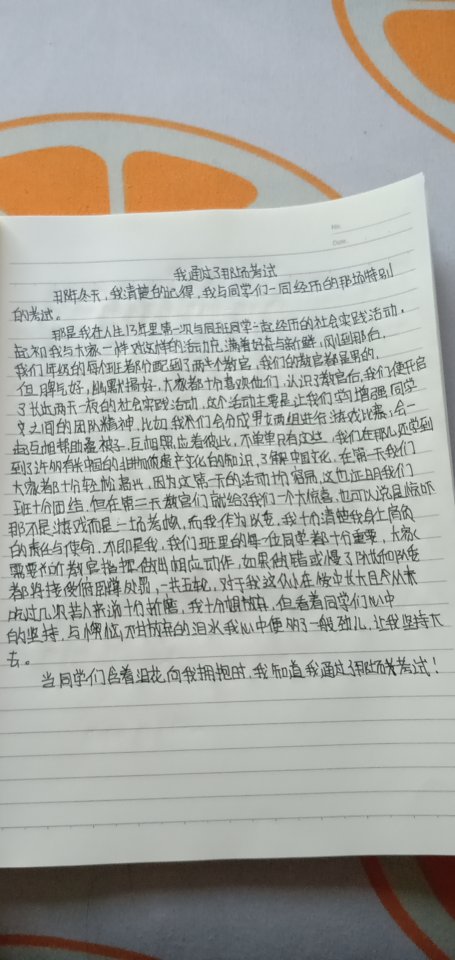 No.
Date.
我通过了那场考试
那年冬天，我清楚的记得，我与同学们一同经历的那场特别
的考试。
那是我在人生13年里第一次与同班同学一起经历的社会实践活动，
起初我与大家一样对这样的活动充满着好奇与新鲜，刚到那台，
我们年级的每个班都分配到了两个教官，我们的教官都是男的，
但脾气好，幽默搞好，大家都十分喜欢他们，认识了教官后，我们便开启
了长达两天一夜的社会实践活动，这个活动主要是让我们学习增强同学
之间的团队精神，比如我们会分成男女两组进行游戏比赛，会一
起互相帮助叠被子，互相照应着彼此，不单单只有这些，我们在那儿还学到
到了许多有关中国的非物质遗产文化的知识，了解中国文化，在第一天我们
大家都十分轻松高兴，因为这第一天的活动十分容易，这也证明我们
班十分团结，但在第二天教官们就给了我们一个大惊喜，也可以说是惊吓
那不是游戏而是一场考验，而我作为队长，我十分清楚我身上肩负
的责任与使命，不即是我，我们班里的每一位同学都十分重要，大家
需要和价教官指挥做出相应动作，如果做错或慢了队长和队委
都将接受俯卧撑处罚，一共五轮，对于我这个从在家中长大且个从未
吃过几次苦人来说十分折磨，我十分想放弃，但看着同学们心中
的坚持，与懊恼，不甘放弃的泪水我心中便多了一般劲儿，让我坚持下
去。
当同学们含着泪花向我拥抱时，我知道我通过了那场考试！